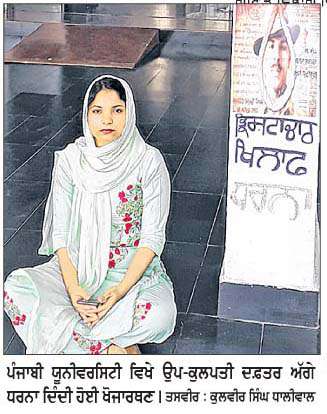 ਭ੍ਰਿਸ਼ਟਾਚਾਰ
ਖਿਲਾਫ
ਧਰਨਾ
ਪੰਜਾਬੀ ਯੂਨੀਵਰਸਿਟੀ ਵਿਖੇ ਉਪ-ਕੁਲਪਤੀ ਦਫ਼ਤਰ ਅੱਗੇ
ਧਰਨਾ ਦਿੰਦੀ ਹੋਈ ਖੋਜਾਰਥਣ। ਤਸਵੀਰ : ਕੁਲਵੀਰ ਸਿੰਘ ਧਾਲੀਵਾਲ